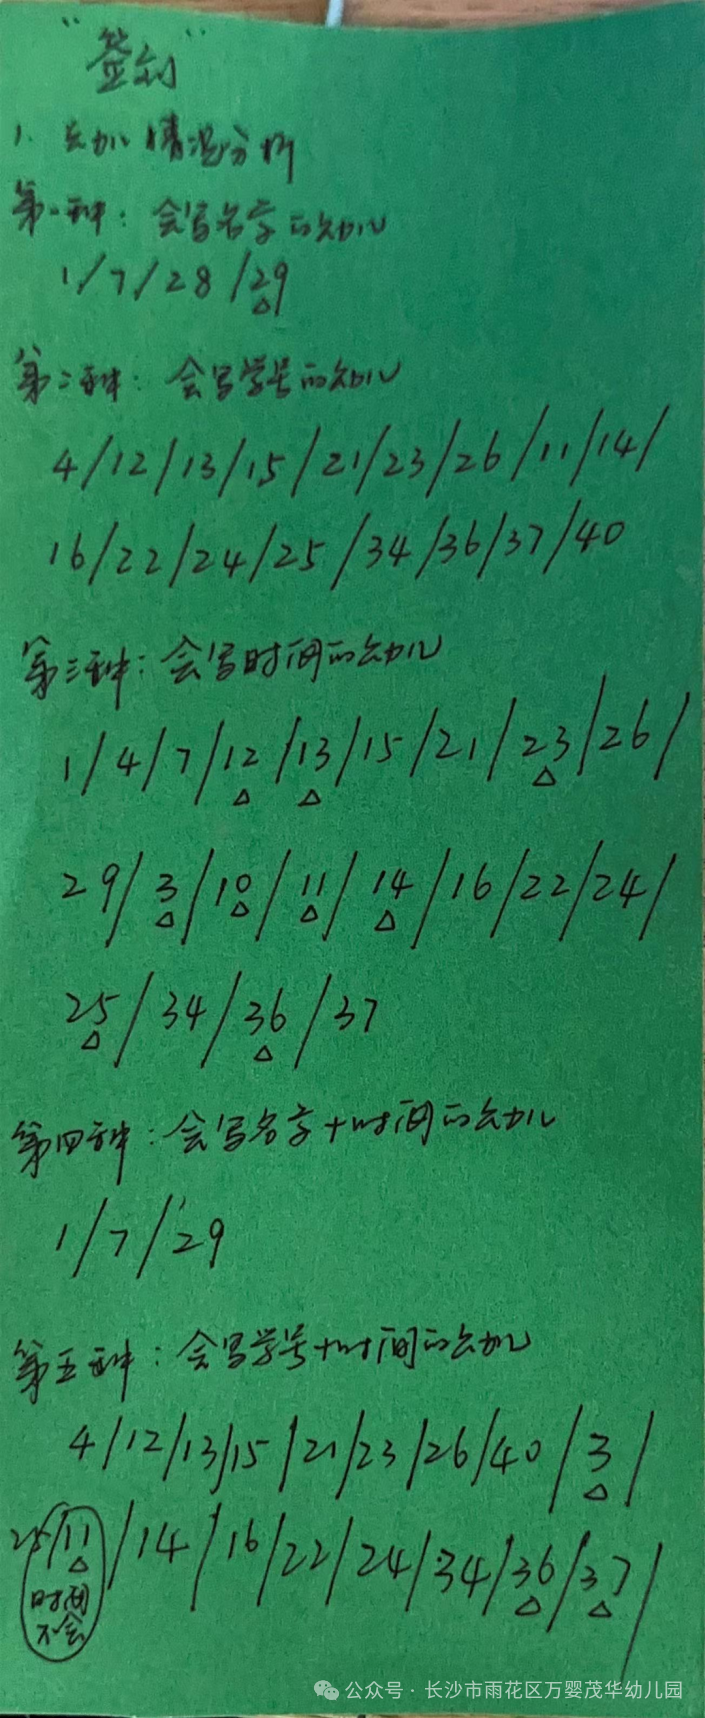 "签到"
1. 幼儿情况分析
第一种：会写名字的幼儿
1/7/28/29
第二种：会写学号的幼儿
4/12/13/15/21/23/26/11/14/
16/22/24/25/34/36/37/40
第三种：会写时间的幼儿
1/4/7/12/13/15/21/23/26/
29/3/10/11/14/16/22/24/
25/34/36/37
第四种：会写名字+时间的幼儿
1/7/29
第五种：会写学号+时间的幼儿
4/12/13/15/21/23/26/40/3/
25/11/14/16/22/24/34/36/37/
时间
不会
公众号·长沙市雨花区万婴茂华幼儿园